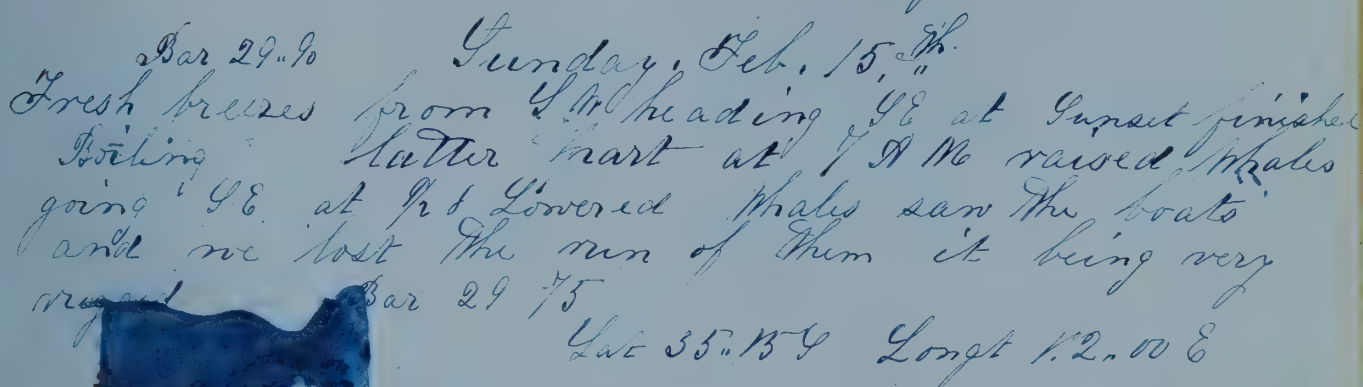 Bar 29..90 Sunday, Feb. 15,th.
Fresh breezes from SW heading SE at Sunset finished
Boiling latter part at 7 AM raised Whales
going SE. at Lowered Whales saw the boats
and we lost the run of them it being very
Bar 29 75
Lat 35..15 S Longt 12..00 E